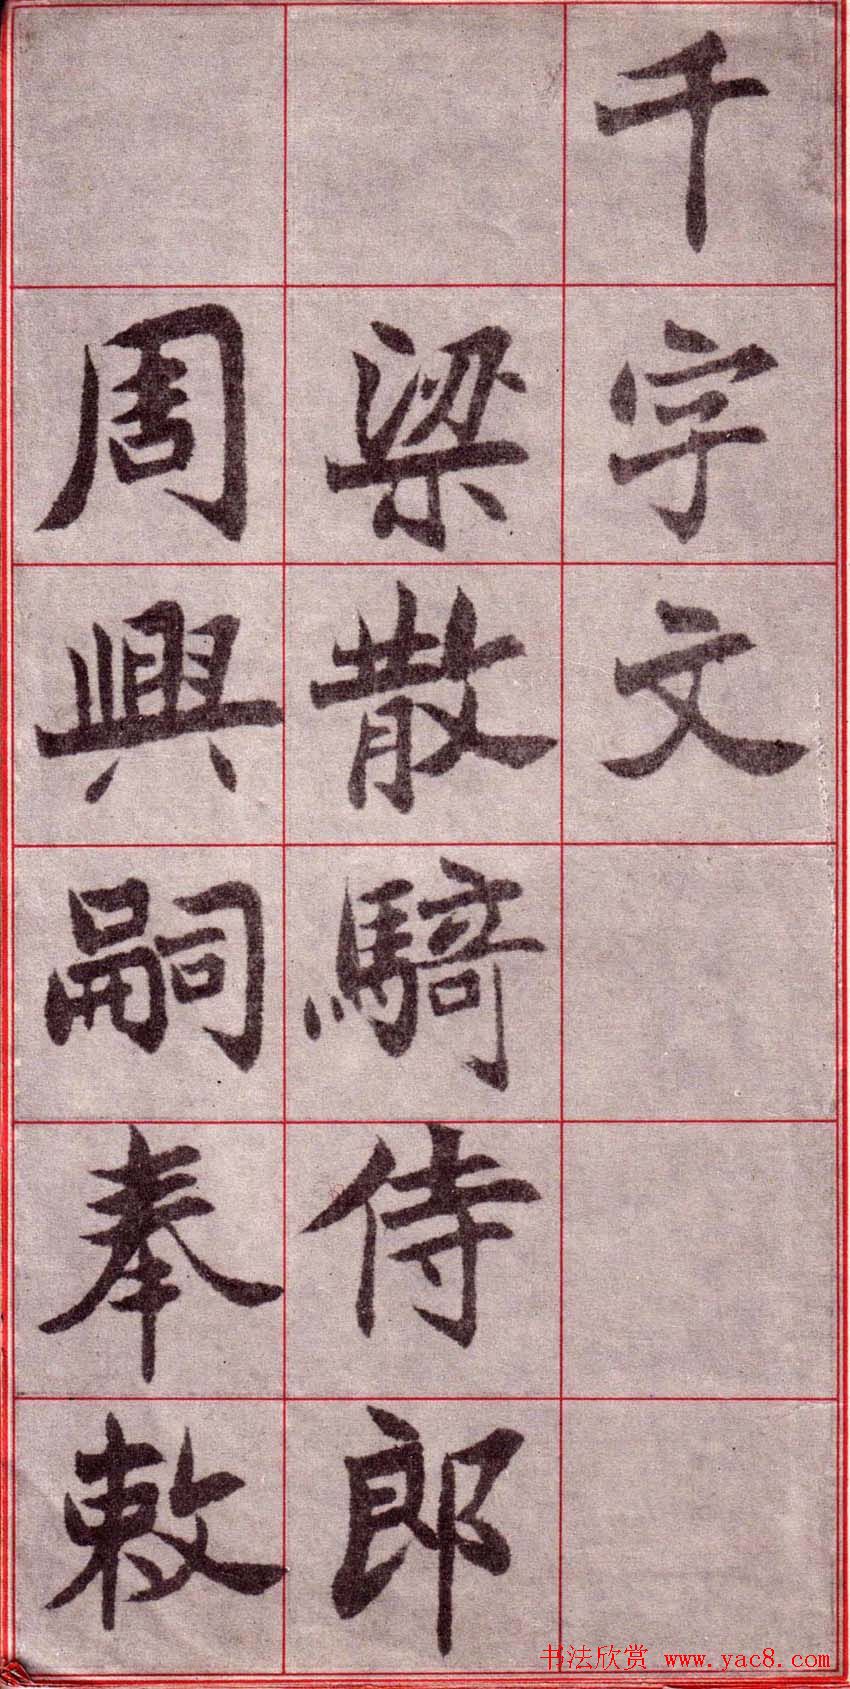 千字文
梁散騎侍郎
周興嗣奉敕
书法欣赏 www.yac8.com